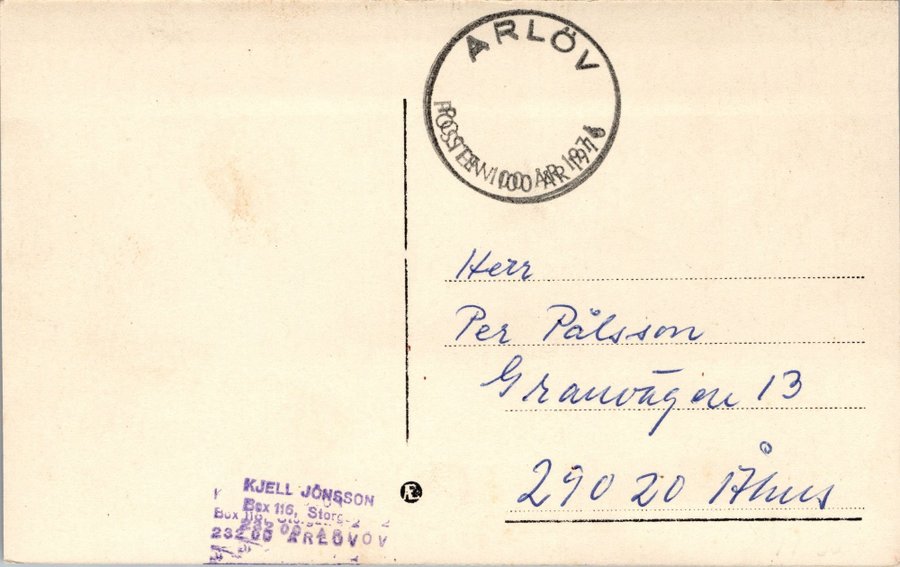 ARLÖV
POSTEN 100 ÅR 1976
Herr
Per Pålsson
Granvägen 13
290 20 Åhus
KJELL JÖNSSON
Box 116, Storg
232 00 ARLÖV